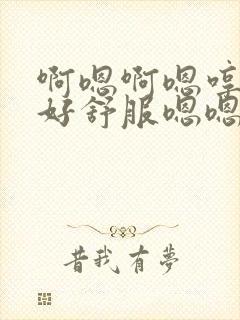 啊嗯啊嗯哼
好舒服嗯嗯
昔我有夢